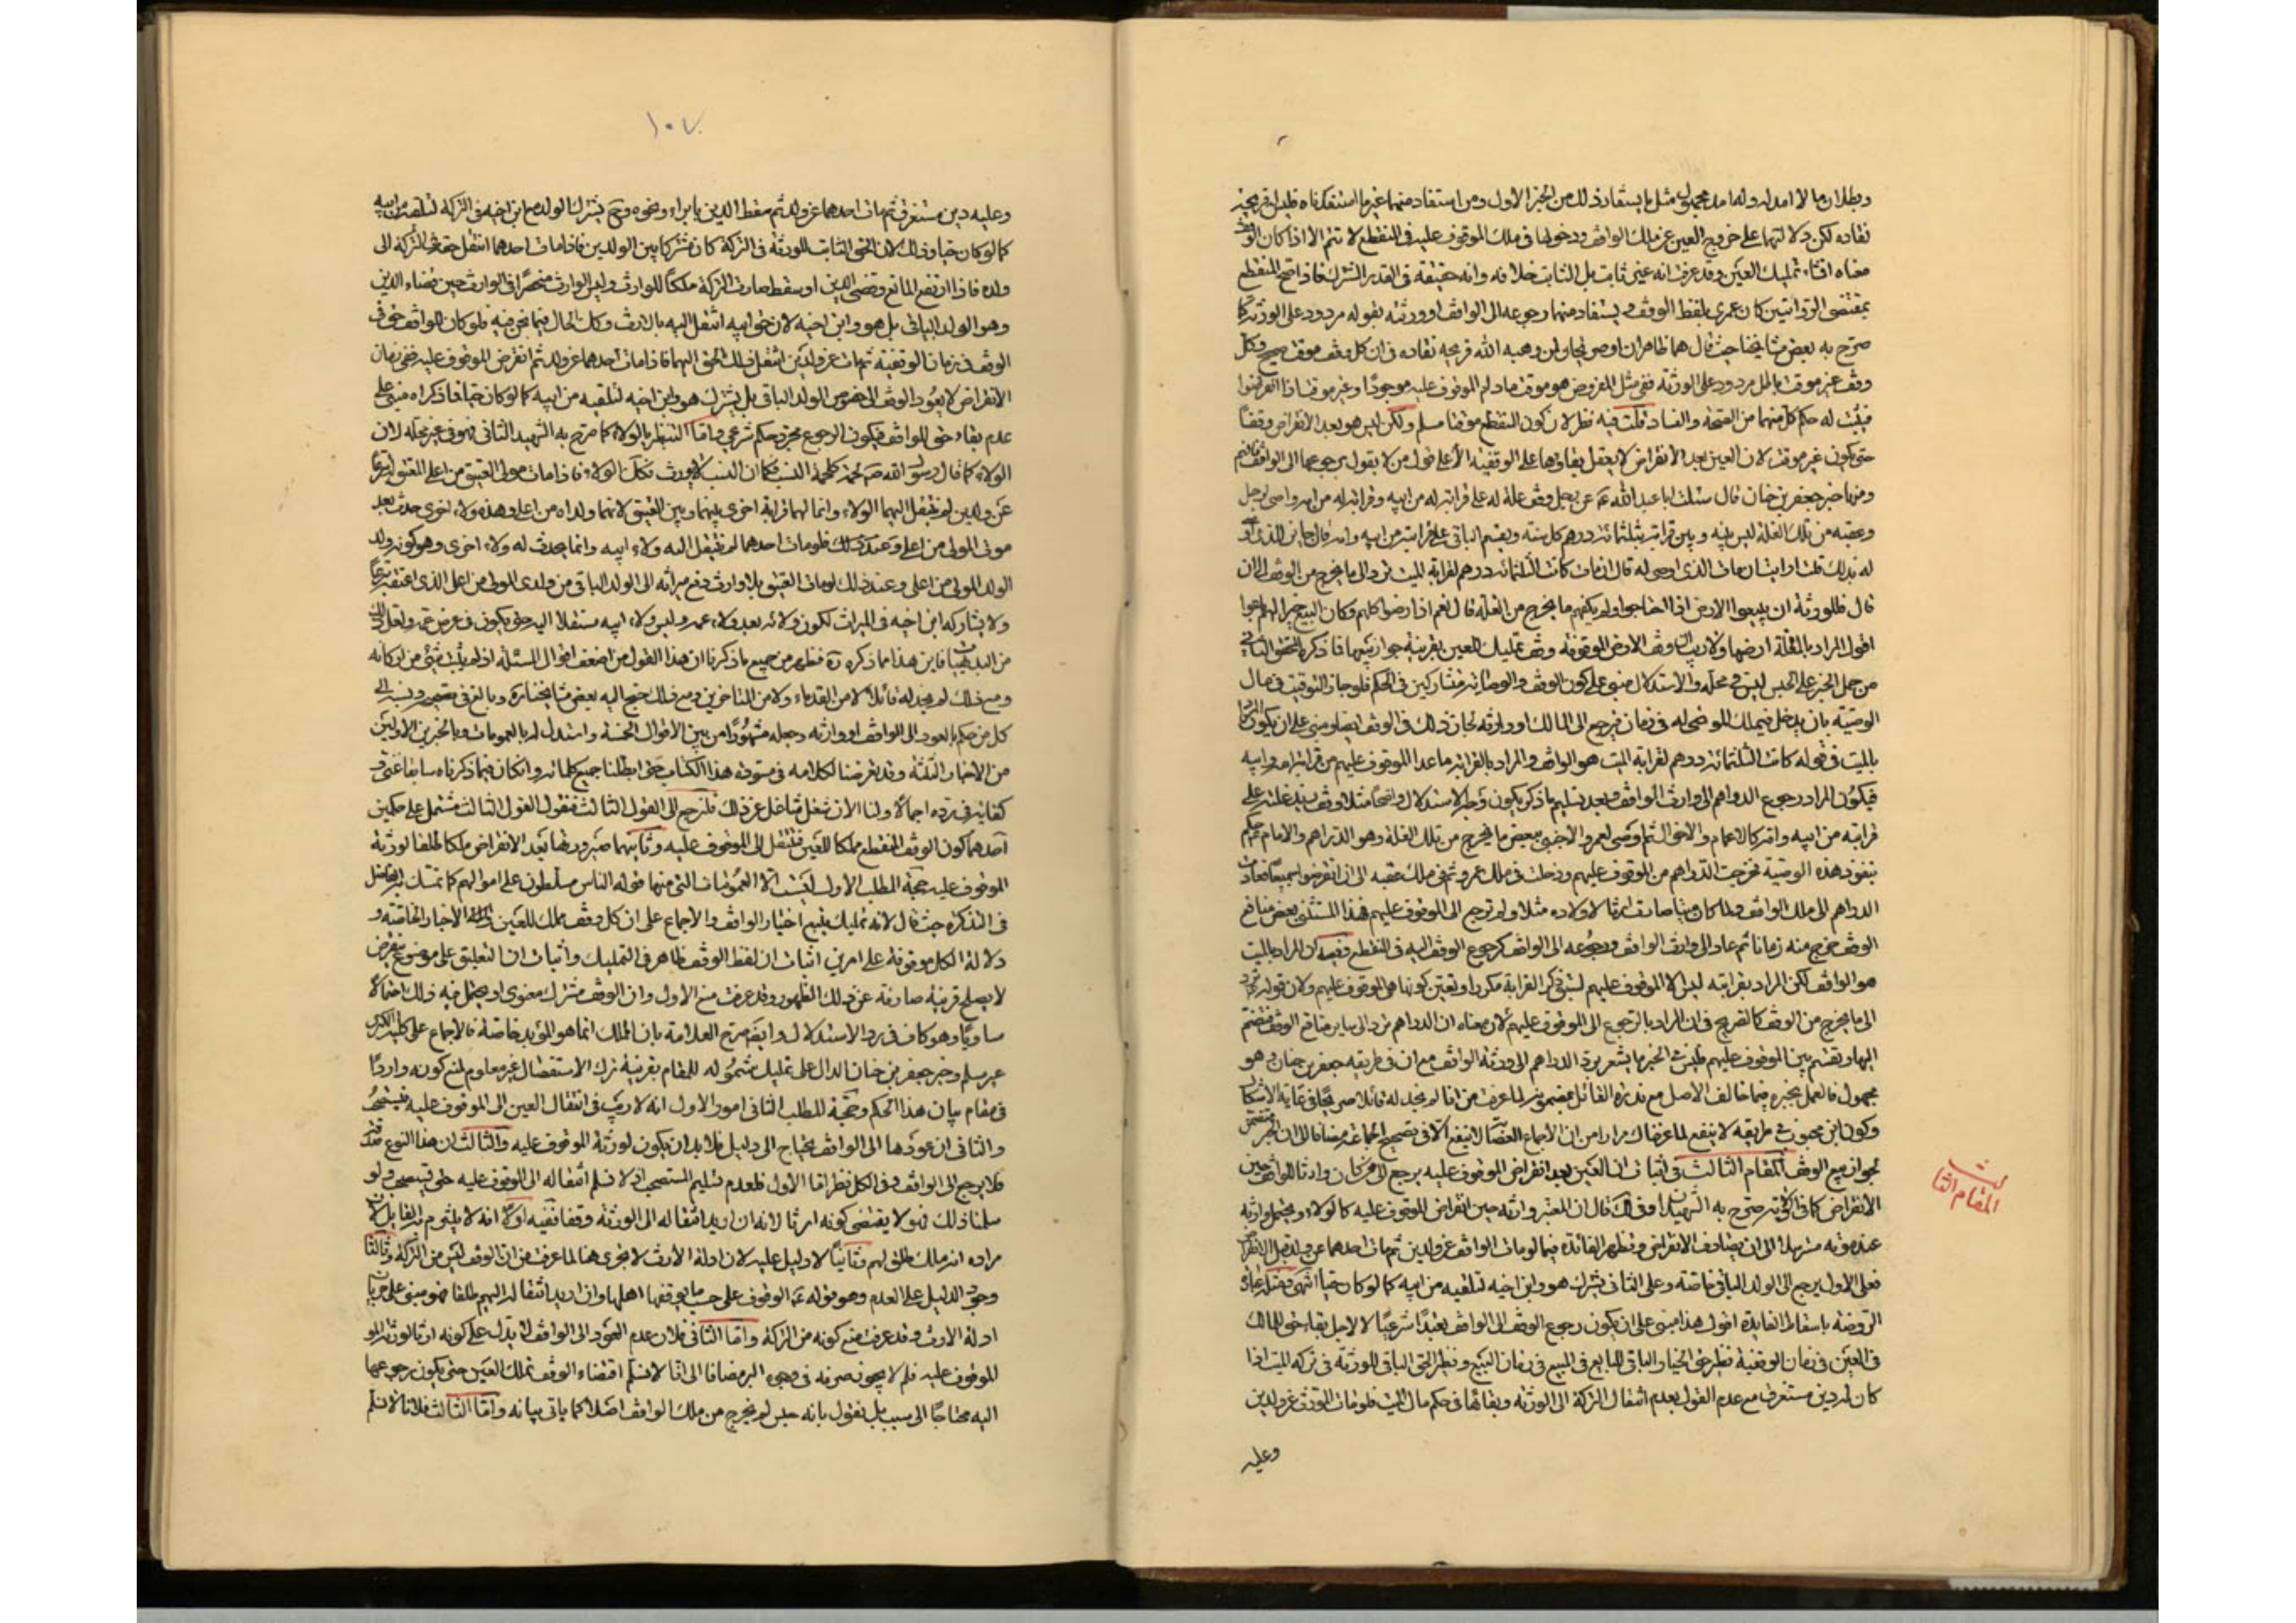 وبطلان ما لا امد له وله امد مجهول مثل ما يستفاد ذلك من الخبر الاول ومن استفاد منهما غير ما استفدناه
نفاده لكن دلالتهما على خروج العين عن ملك الواقف ودخولها في ملك الموقوف عليه في المنقطع لا تتم الا اذا كان الوقف
معناه انشاء تمليك العين وقد عرفت انه غير ثابت بل الثابت خلافه وانه حقيقة في القدر المشترك فاذا صح المنقطع
بمقتضى الروايتين كان عمرى بلفظ الوقف ويستفاد منهما رجوعه الى الواقف او ورثته بقوله مردود على الورثة كما
صرح به بعض مشايخنا حيث قال هما ظاهران او صريحان لمن وهبه الله قريحة نقادة في ان كل وقف موقت صحيح وكل
وقف غير موقت باطل مردود على الورثة ففي مثل المفروض هو موقت مادام الموقوف عليه موجودا وغير موقت اذا انقرضوا
فيثبت له حكم كل منهما من الصحة والفساد قلت فيه نظر لان كون المنقطع موقتا مسلم ولكن ليس هو بعد الانقراض وقفا
حتى يكون غير موقت لان العين بعد الانقراض لا يعقل بقاؤها على الوقفية الا على قول من لا يقول برجوعها الى الواقف فافهم
ومنها خبر جعفر بن حنان قال سئلت ابا عبد الله عن رجل وقف غلة له على قرابته من ابيه وقرابته من امه واوصى لرجل
وعقبه من تلك الغلة ليس بينه وبين قرابته بثلثمائة درهم كل سنة ويقسم الباقي على قرابته من ابيه وامه قال جايز للذى اوصى
له بذلك قلت ارايت ان مات الذى اوصى له قال ان مات كانت الثلثمائة درهم لقرابة الميت ترد الى ما يخرج من الوقف الى ان
قال فللورثة ان يبيعوا الارض اذا احتاجوا ولم يكفهم ما يخرج من الغلة قال نعم اذا رضوا كلهم وكان البيع خيرا لهم باعوا
اقول المراد بالغلة ارضها ولا ريب ان وقف الارض الموقوفة وقف تمليك العين بقرينة جواز بيعها فما ذكره المحقق الثاني
من حمل الخبر على الحبس ليس في محله والاستدلال مبنى على كون الوقف والوصاية مشتركين في الحكم فلو جاز التوقيت في مال
الوصية بان يدخل في ملك الموصى له في زمان فيرجع الى المالك او وارثه لجاز ذلك في الوقف ايضا ومبنى على ان يكون المراد
بالميت في قوله كانت الثلثمائة درهم لقرابة الميت هو الواقف والمراد بالقرابة ما عدا الموقوف عليهم من قرابة امه وابيه
فيكون المراد رجوع الدراهم الى وارث الواقف وبعد تسليم ما ذكر يكون وجه الاستدلال واضحا مثلا وقف زيد غلته على
قرابته من ابيه وامه كالاعمام والاخوال ثم وصى لعمرو الاجنبي ببعض ما يخرج من تلك الغلة وهو الدراهم والامام حكم
بنفوذ هذه الوصية فخرجت الدراهم من الموقوف عليهم ودخلت في ملك عمرو ثم في ملك عقبه الى ان انقرضوا جميعا فعادت
الدراهم الى ملك الواقف ولما كان ميتا صارت ارثا لاولاده مثلا ولم ترجع الى الموقوف عليهم فهذا المستثنى بعض منافع
الوقف خرج منه زمانا ثم عاد الى وارث الواقف ورجوعه الى الواقف كرجوع الوقف اليه في المنقطع ففيه ان المراد بالميت
هو الواقف لكن المراد بقرابته ليس الا الموقوف عليهم لسبق ذكر القرابة مكررا ويتعين كونها هي الموقوف عليهم ولان قوله ترد
الى ما يخرج من الوقف كالصريح في ان المراد بالرجوع الى الموقوف عليهم لان معناه ان الدراهم ترد الى ساير منافع الوقف فتضم
اليها وتقسم بين الموقوف عليهم فليس في الخبر ما يشعر برد الدراهم الى ورثة الواقف مع ان في طريقه جعفر بن حنان وهو
مجهول فالعمل بخبره فيما خالف الاصل مع ندرة القائل بمضمونه لما عرفت من انا لم نجد له قائلا صريحا في غاية الاشكال
وكون ابن محبوب في طريقه لا ينفع لما عرفناك مرارا من ان الاجماع العصابة لا ينفع الا في تصحيح الجماعة مضافا الى ان الخبر متضمن
لجواز بيع الوقف المقام الثالث في اثبات ان العين بعد انقراض الموقوف عليه يرجع الى من كان وارثا للواقف حين
الانقراض كما في الكفاية صرح به الشهيد قال ان المعتبر وارثه حين انقراض الموقوف عليه كالولاء ويحتمل وارثه
عند موته مسترسلا الى ان يصادف الانقراض وتظهر الفائدة فيما لو مات الواقف عن ولدين ثم مات احدهما عن ولد قبل الانقراض
فعلى الاول يرجع الى الولد الباقي خاصة وعلى الثاني يشترك هو وابن اخيه لتلقيه من ابيه كما لو كان حيا انتهى
الروضة باسقاط الفايدة اقول هذا مبنى على ان يكون رجوع الوقف الى الواقف تعبدا شرعيا لا لاجل بقاء حق المالك
في العين في زمان الوقفية نظير حق الخيار الباقي للبايع في المبيع في زمان البيع ونظير الحق الباقي للورثة في تركة الميت اذا
كان له دين مستغرق مع عدم القول بعدم انتقال التركة الى الورثة وبقائها في حكم مال الميت فلو مات المورث عن ولدين
وعليه
المقام الثالث
١٠٧
وعليه دين مستغرق ثم مات احدهما عن ولد ثم سقط الدين بابراء ونحوه وح يشترك الولد مع ابن اخيه في التركة لتلقيه من ابيه
كما لو كان حيا وذلك لان الحق الثابت للورثة في التركة كان مشتركا بين الولدين فاذا مات احدهما انتقل حقه في التركة الى
ولده فاذا ارتفع المانع وقضى الدين او سقط صارت التركة ملكا للوارث وليس الوارث منحصرا في الوارث حين قضاء الدين
وهو الولد الباقي بل هو وابن اخيه لان حق ابيه انتقل اليه بالارث وكك الحال فيما نحن فيه فلو كان للواقف حق في
الوقف في زمان الوقفية ثم مات عن ولدين انتقل ذلك الحق اليهما فاذا مات احدهما عن ولد ثم انقرض الموقوف عليه ففي زمان
الانقراض لا يعود الوقف الى خصوص الولد الباقي بل يشترك هو وابن اخيه لتلقيه من ابيه كما لو كان حيا فما ذكراه مبنى على
عدم بقاء حق للواقف فيكون الرجوع مجرد حكم شرعي واما التنظير بالولاء كما صرح به الشهيد الثاني فهو في غير محله لان
الولاء كما قال رسول الله لحمة كلحمة النسب فكما ان النسب لا يورث فكك الولاء فاذا مات مولى العتيق من اعلى المعتق له تبرعا
عن ولدين لم ينتقل اليهما الولاء وانما لهما قرابة اخرى بينهما وبين العتيق لانهما ولداه من اعلى وهذه ولاء اخرى حدث بعد
موت المولى من اعلى وعند ذلك فلو مات احدهما لم ينتقل اليه ولاء ابيه وانما يحدث له ولاء اخرى وهو كونه ولد
الولد المولى من اعلى وعند ذلك لو مات العتيق بلا وارث دفع ميراثه الى الولد الباقي من ولدى المولى من اعلى الذى اعتقه تبرعا
ولا يشاركه ابن اخيه في الميراث لكون ولائه بعد ولاء عمه وليس ولاء ابيه منتقلا اليه حتى يكون في عرض عمه ولعل ذلك
من البديهيات فاين هذا مما ذكره ره فظهر من جميع ما ذكرنا ان هذا القول من اضعف اقوال المسئلة اذ لم يثبت شئ من اركانه
ومع ذلك لم نجد له قائلا لا من القدماء ولا من المتاخرين ومع ذلك جنح اليه بعض مشايخنا ره وبالغ في تصحيحه ونسبه الى
كل من حكم بالعود الى الواقف او وارثه وجعله مشهورا من بين الاقوال الخمسة واستدل له بالعمومات وبالخبرين الاولين
من الاخبار الثلثة وقد تعرضنا لكلامه في مسودة هذا الكتاب حتى ابطلنا جميع كلماته وان كان فيما ذكرناه سابقا غنى و
كفاية في رده اجمالا ولنا الان شغل شاغل عن ذلك فلنرجع الى القول الثالث فنقول القول الثالث مشتمل على حكمين
احدهما كون الوقف المنقطع مملكا للعين فتنتقل الى الموقوف عليه وثانيهما صيرورتها بعد الانقراض ملكا طلقا لورثة
الموقوف عليه حجة المطلب الاول ليست الا العمومات التي منها قوله الناس مسلطون على اموالهم كما تمسك به الفاضل
في التذكرة حيث قال لانه تمليك يتبع اختيار الواقف والاجماع على ان كل وقف مملك للعين والاخبار الخاصة و
دلالة الكل موقوفة على امرين اثبات ان لفظ الوقف ظاهر في التمليك واثبات ان التعليق على موضوع ينقرض
لا يصلح قرينة صارفة عن ذلك الظهور وقد عرفت منع الاول وان الوقف مشترك معنوى او يحتمل فيه ذلك احتمالا
مساويا وهو كاف في رد الاستدلال وايضا صرح العلامة بان المملك انما هو المؤبد خاصة فالاجماع على كلية الكبرى
غير مسلم وخبر جعفر بن حنان الدال على تمليك شموله للمقام بقرينة ترك الاستفصال غير معلوم لمنع كونه واردا
في مقام بيان هذا الحكم وحجة للمطلب الثاني امور الاول انه لا ريب في انتقال العين الى الموقوف عليه فيستصحب
والثاني ان عودها الى الواقف يحتاج الى دليل فلابد ان يكون لورثة الموقوف عليه والثالث ان هذا النوع صدقة
فلا يرجع الى الواقف وفي الكل نظر اما الاول فلعدم تسليم المستصحب اذ لا نسلم انتقاله الى الموقوف عليه حتى يستصحب ولو
سلمنا ذلك فهو لا يقتضى كونه ارثا لانه ان اريد انتقاله الى الورثة وقفا ففيه اولا انه لا يلتزم به القائل لان
مراده انه ملك طلق لهم وثانيا لا دليل عليه لان ادلة الارث لا تجرى هنا لما عرفت من ان الوقف ليس من التركة وثالثا
وجود الدليل على العدم وهو قوله الوقوف على حسب ما يوقفها اهلها وان اريد انتقاله اليهم طلقا فهو مبنى على جريان
ادلة الارث وقد عرفت منع كونه من التركة واما الثاني فلان عدم العود الى الواقف لا يدل على كونه ارثا لورثة
الموقوف عليه فلم لا يجوز صرفه في وجوه البر مضافا الى انا لا نسلم اقتضاء الوقف تملك العين حتى يكون رجوعها
اليه محتاجا الى سبب بل نقول بانه حبس لم يخرج من ملك الواقف اصلا كما ياتي بيانه واما الثالث فلانا لا نسلم